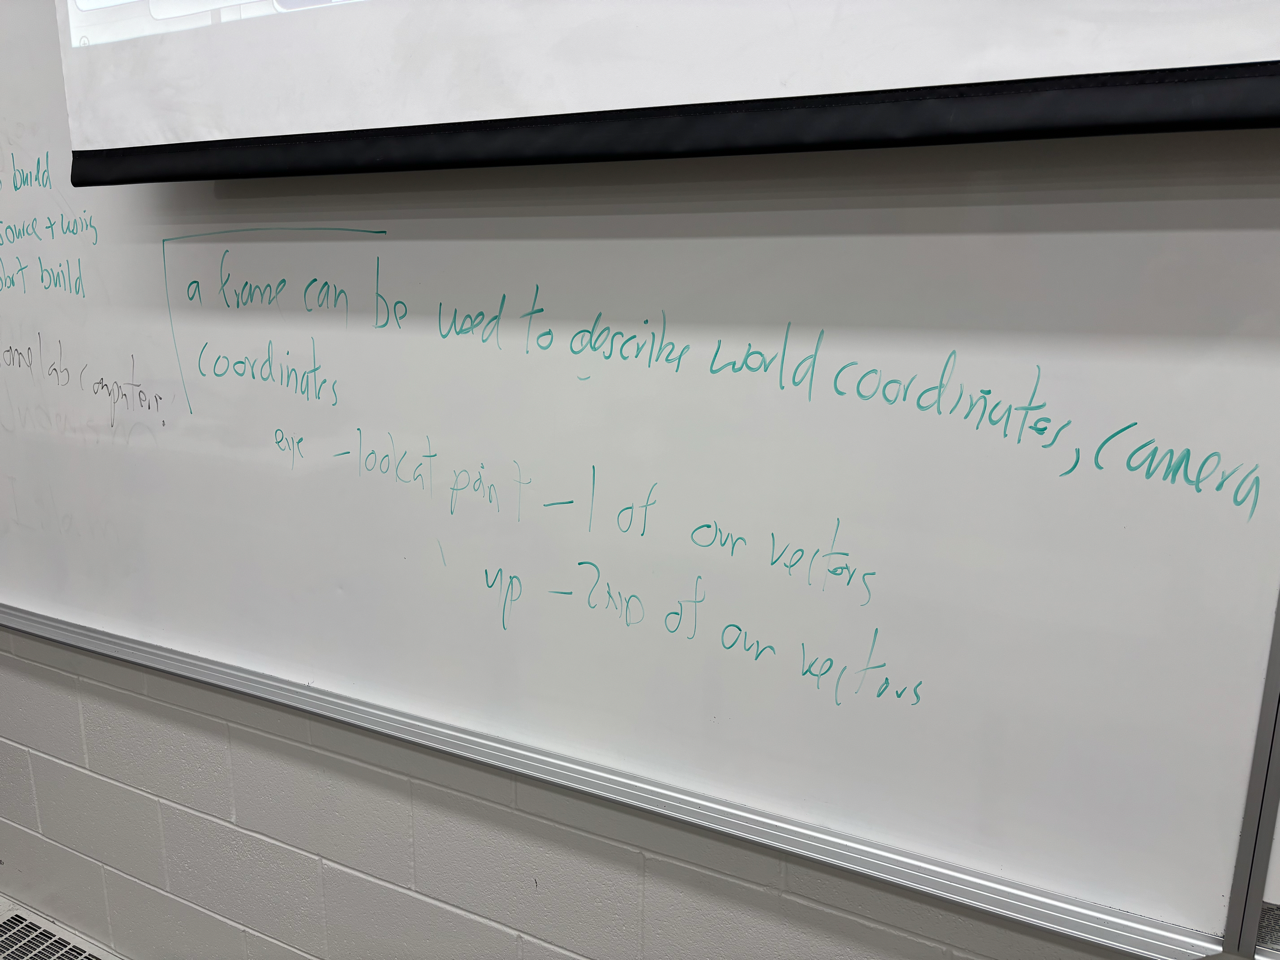 build
source + using
build
lab computers.
a frame can be used to describe world coordinates, camera
coordinates
eye - lookat point - 1 of our vectors
up - 2ND of our vectors